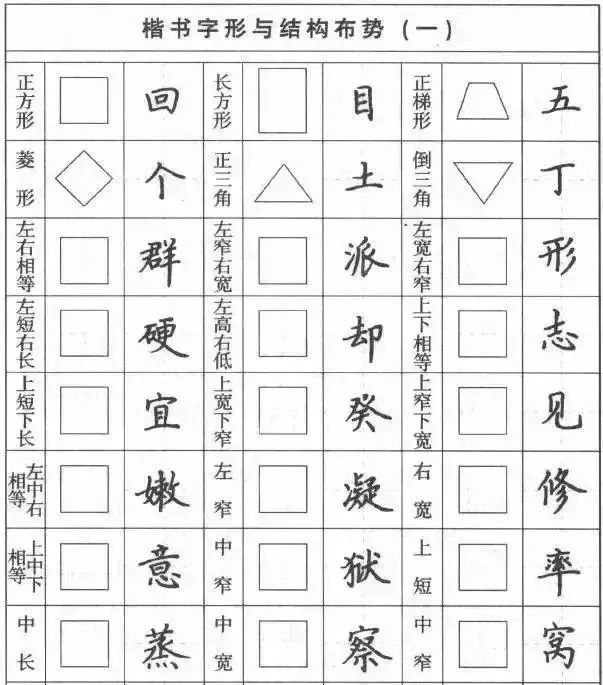 楷书字形与结构布势(一)
正方形 回 长方形 目 正梯形 五
菱形 个 正三角 土 倒三角 丁
左右相等 群 左窄右宽 派 左宽右窄 形
左短右长 硬 左高右低 却 上下相等 志
上短下长 宜 上宽下窄 癸 上窄下宽 见
左中右相等 嫩 左窄 凝 右宽 修
上中下相等 意 中窄 狱 上短 率
中长 蒸 中宽 察 中窄 窝